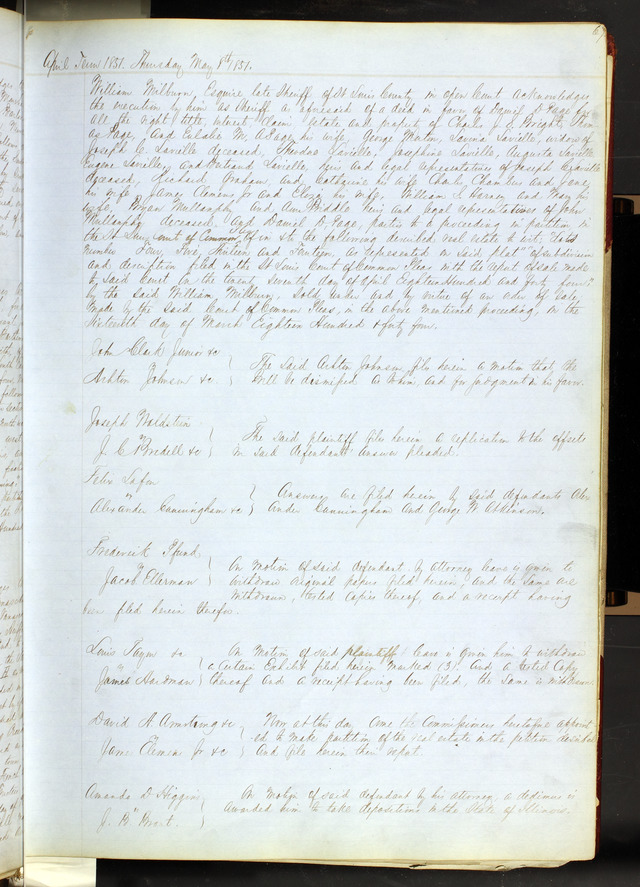 April Term 1851. Thursday May 8th 1851.
William Milburn, Esquire late Sheriff of St Louis County in open Court acknowledges
the execution by him as Sheriff as aforesaid of a deed in favor of Daniel D. Page for
all the right title, interest claim estate and property of Charles Bright,
as Page, and Eulalie M. A. Page his wife, George Morton, Louise Laveille, widow of
Joseph C. Laveille deceased, Theodore Laveille, Josephine Laveille, Augusta Laveille
Eugene Laveille, and Gertrude Laveille heirs and legal representatives of Joseph C. Laveille
deceased, Richard Graham, and Catharine his wife Charles Chambers and Jane
his wife, James Clemens Jr and Eliza his wife, William S. Harney and Mary his
wife, Bryan Mullanphy and Ann Biddle heirs and legal representatives of John
Mullanphy deceased, and Daniel D. Page, parties to a proceeding in partition in
the St Louis Court of Common Pleas in & to the following described real estate to wit: Lots
number Four, Five Thirteen and Fourteen, as represented in said plat of subdivision
and description filed in the St Louis Court of Common Pleas, with the report of sale made
to said Court on the twenty seventh day of April Eighteen Hundred and forty four"
by the said William Milburn, Sold under and by virtue of an order of Sale
made by the said Court of Common Pleas, in the above mentioned proceeding, on the
Sixteenth day of March Eighteen Hundred & forty four.
John Clark Junior &c
The said Ashton Johnson files herein a motion that the
Ashton Johnson &c
bill be dismissed as to him, and for judgment in his favor.
Joseph Waldstein
The said plaintiff files herein a replication to the offsets
J. C. Bredell &c
in said defendants' answer pleaded.
Felix Lafon
Answers are filed herein by said defendants Alex
Alexander Cunningham &c
ander Cunningham and George W. Atkinson.
Frederick Pfund
On motion of said defendant by attorney leave is given to
Jacob Ellerman
withdraw original papers filed herein, and the same are
withdrawn, tested copies thereof, and a receipt having
been filed herein therefor.
Louis Payen &c
On motion of said plaintiff leave is given him to withdraw
a certain Exhibit filed herein marked (3) and a tested Copy
James Hardman
thereof and a receipt having been filed, the same is withdrawn.
David H Armstrong &c
Now at this day come the Commissioners heretofore appoint
ed to make partition of the real estate in the petition described
James Clemens Jr &c
and file herein their report.
Amanda D Higgins
On motion of said defendant by his attorney, a dedimus is
awarded him to take depositions in the State of Illinois.
J. B. Brart.